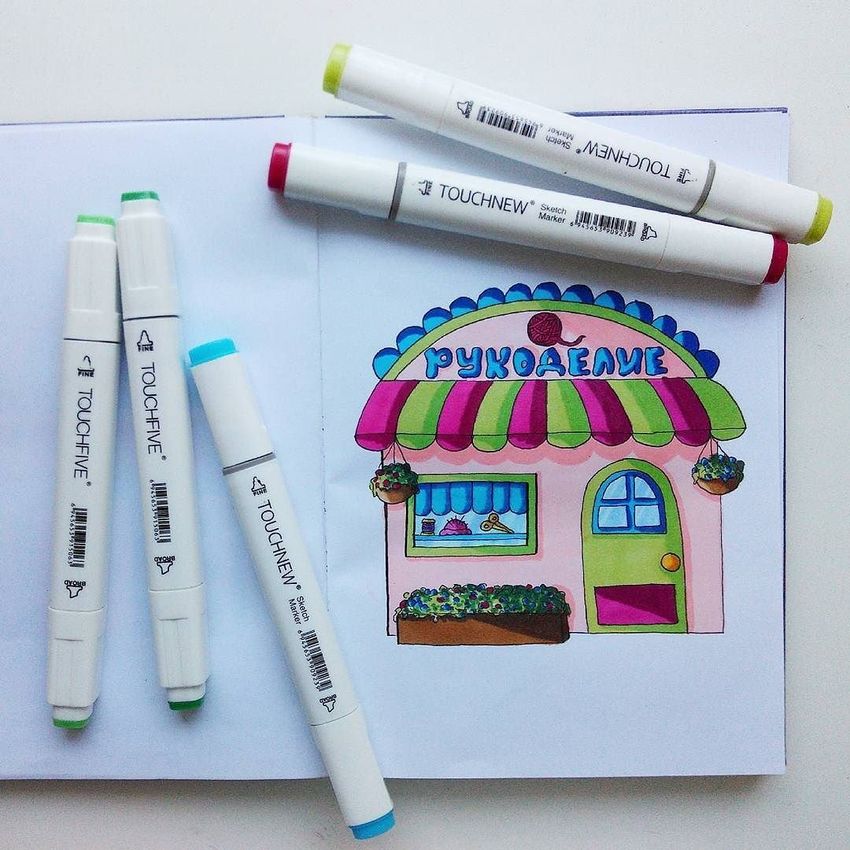 TOUCHNEW® Sketch Marker
FINE
BROAD
FINE TOUCHNEW® Sketch Marker
6945653909239
BROAD
РУКОДЕЛИЕ
FINE
TOUCHFIVE®
BROAD
FINE
TOUCHFIVE®
BROAD
FINE
TOUCHNEW® Sketch Marker
BROAD